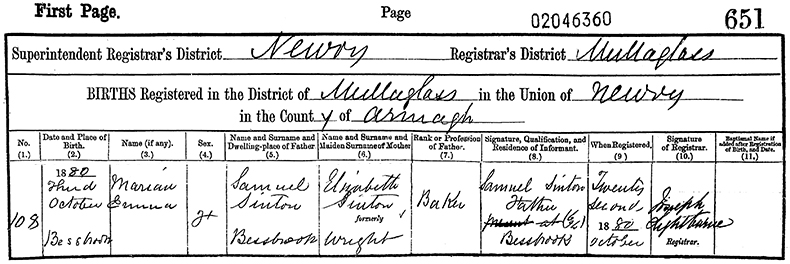 First Page. Page 02046360 651
Superintendent Registrar's District Newry Registrar's District Mullaglass
BIRTHS Registered in the District of Mullaglass in the Union of Newry
in the County of Armagh
No. (1.) Date and Place of Birth. (2.) Name (if any). (3.) Sex. (4.) Name and Surname and Dwelling-place of Father. (5.) Name and Surname and Maiden Surname of Mother (6.) Rank or Profession of Father. (7.) Signature, Qualification, and Residence of Informant. (8.) When Registered. (9.) Signature of Registrar. (10.) Baptismal Name if added after Registration of Birth, and Date. (11.)
108
1880 Third October Bessbrook
Marian Emma
Samuel Sinton Bessbrook
Elizabeth Sinton formerly Wright
Baker
Samuel Sinton Father present at Bessbrook
Twenty second 1880 October
Joseph Lightburne Registrar.